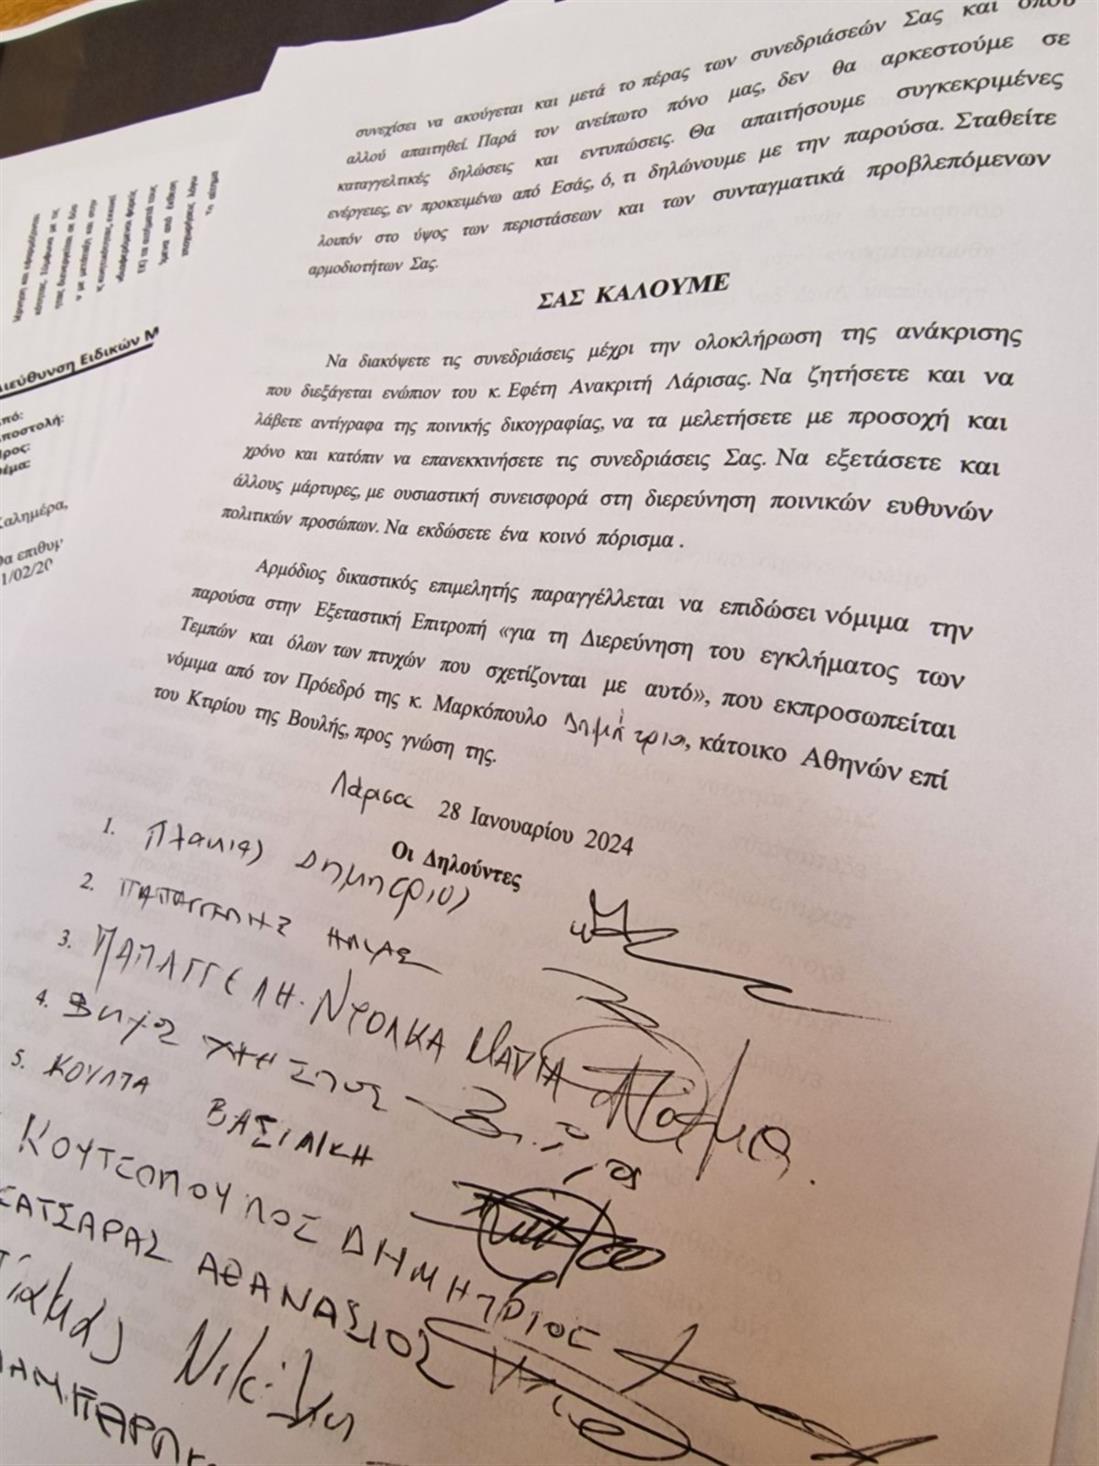 συνεχίσει να ακούγεται και μετά το πέρας των συνεδριάσεών Σας και όπου
αλλού απαιτηθεί. Παρά τον ανείπωτο πόνο μας, δεν θα αρκεστούμε σε
καταγγελτικές δηλώσεις και εντυπώσεις. Θα απαιτήσουμε συγκεκριμένες
ενέργειες, εν προκειμένω από Εσάς, ό, τι δηλώνουμε με την παρούσα. Σταθείτε
λοιπόν στο ύψος των περιστάσεων και των συνταγματικά προβλεπόμενων
αρμοδιοτήτων Σας.
ΣΑΣ ΚΑΛΟΥΜΕ
Να διακόψετε τις συνεδριάσεις μέχρι την ολοκλήρωση της ανάκρισης
που διεξάγεται ενώπιον του κ. Εφέτη Ανακριτή Λάρισας. Να ζητήσετε και να
λάβετε αντίγραφα της ποινικής δικογραφίας, να τα μελετήσετε με προσοχή και
χρόνο και κατόπιν να επανεκκινήσετε τις συνεδριάσεις Σας. Να εξετάσετε και
άλλους μάρτυρες, με ουσιαστική συνεισφορά στη διερεύνηση ποινικών ευθυνών
πολιτικών προσώπων. Να εκδώσετε ένα κοινό πόρισμα .
Αρμόδιος δικαστικός επιμελητής παραγγέλλεται να επιδώσει νόμιμα την
παρούσα στην Εξεταστική Επιτροπή «για τη Διερεύνηση του εγκλήματος των
Τεμπών και όλων των πτυχών που σχετίζονται με αυτό», που εκπροσωπείται
νόμιμα από τον Πρόεδρό της κ. Μαρκόπουλο Δημήτριο, κάτοικο Αθηνών επί
του Κτιρίου της Βουλής, προς γνώση της.
Λάρισα 28 Ιανουαρίου 2024
Οι Δηλούντες
1. Πλακιάς Δημήτριος
2. ΠΑΠΑΓΓΕΛΗΣ ΗΛΙΑΣ
3. ΠΑΠΑΓΓΕΛΗ-ΝΤΟΛΚΑ ΜΑΡΙΑ
4. ΒΛΑΧΟΣ ΧΡΗΣΤΟΣ
5. ΚΟΥΛΤΑ ΒΑΣΙΛΙΚΗ
ΚΟΥΤΣΟΠΟΥΛΟΣ ΔΗΜΗΤΡΙΟΣ
ΤΣΑΤΣΑΡΑΣ ΑΘΑΝΑΣΙΟΣ
Διεύθυνση Ειδικών Μ
Καλημέρα,